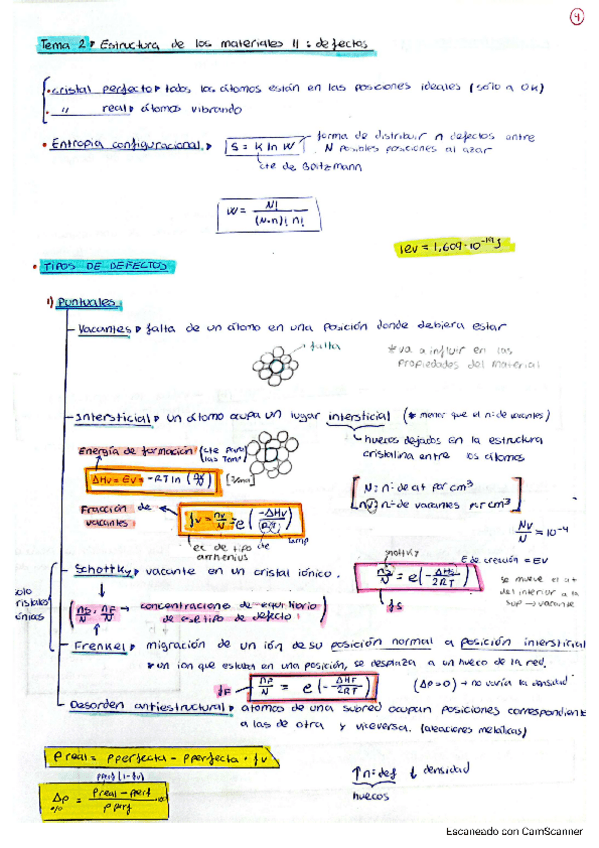 4
Tema 2 Estructura de los materiales II : defectos
cristal perfecto todos los átomos están en las posiciones ideales (sólo a 0K)
" real átomos vibrando
Entropía configuracional S = K ln W forma de distribuir n defectos entre
N posibles posiciones al azar
cte de Boltzmann
W = N! / (N-n)! n!
1ev = 1,609·10⁻¹⁹J
TIPOS DE DEFECTOS
1) Puntuales
Vacantes falta de un átomo en una posición donde debiera estar
falta
* va a influir en las
propiedades del material
Intersticial un átomo ocupa un lugar intersticial (* menor que el nº de vacantes)
huecos dejados en la estructura
cristalina entre los átomos
Energía de formación (cte para
las Tons)
ΔHv = Ev = -RT ln (nv/N)
N: nº de at por cm³
nv: nº de vacantes por cm³
Fracción de
vacantes
fv = nv/N = e(-ΔHv/RT)
Nv/N = 10⁻⁴
ec de tipo de
arrhenius
Temp
Schottky
E de creación = EV
Schottky vacante en un cristal iónico.
ns/N = e(-ΔHs/2RT)
fs
se mueve el at
del interior a la
sup → vacante
solo
cristales
iónicos
(ns/N, nF/N → concentraciones de equilibrio
de ese tipo de defecto)
Frenkel migración de un ión de su posición normal a posición intersticial
un ion que estaba en una posición, se desplaza a un hueco de la red.
fF nF/N = e(-ΔHF/2RT) (Δρ=0) → no varía la densidad
Desorden antiestructural átomos de una subred ocupan posiciones correspondiente
a las de otra y viceversa. (aleaciones metálicas)
ρ real = ρ perfecta - ρ perfecta · fv
ρperf (1-fv)
↑ nº def ↓ densidad
huecos
Δρ % = ρ real - ρerf / ρ perf
Escaneado con CamScanner